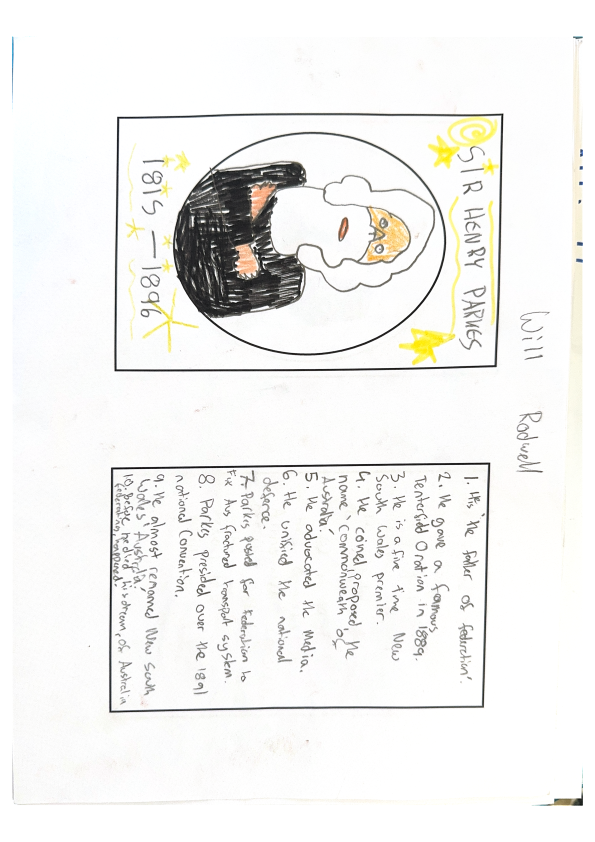 Will Rodwell
SIR HENRY PARKES
1815 – 1896
1. His 'the father of federation'.
2. He gave a famous
Tenterfild Oration in 1889.
3. He is a five time New
South Wales premier.
4. He coined proposed the
name 'Commonwealth of
Australia'
5. He advocated the Media.
6. He unifired the national
defence.
7. Parkes pused for Federation to
Fix Aus fractured transport system.
8. Parkes presided over the 1891
national Convention.
9. He almost renamed New South
Wales 'Australia'.
10. Before he died his dream, of Australia
federation, happened.